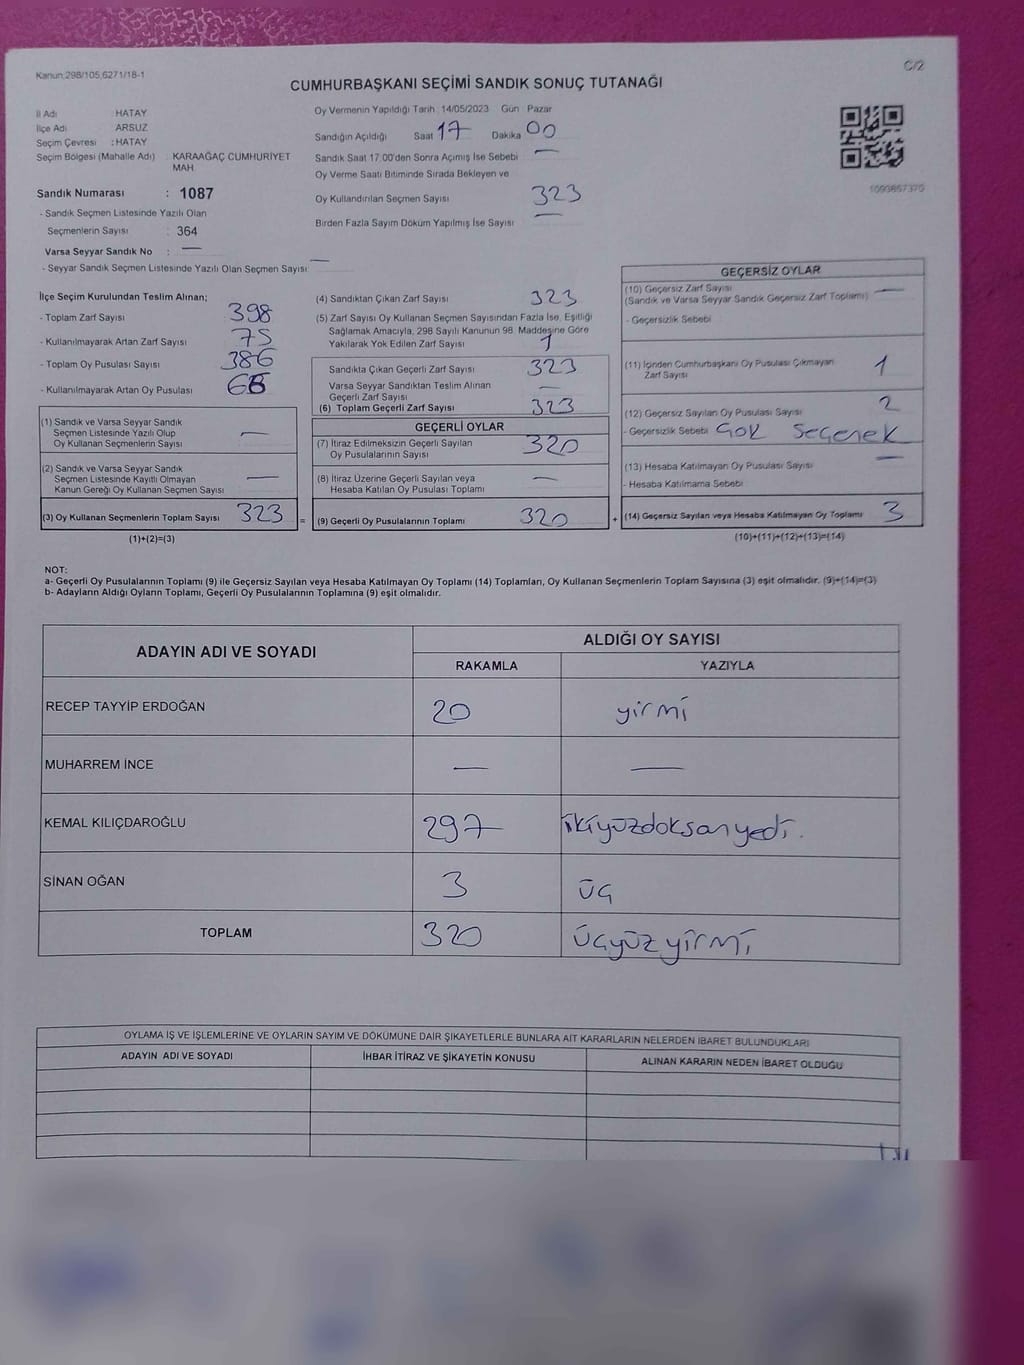 Kanun,298/105,6271/18-1
C/2
CUMHURBAŞKANI SEÇİMİ SANDIK SONUÇ TUTANAĞI
İl Adı : HATAY
İlçe Adı : ARSUZ
Seçim Çevresi : HATAY
Seçim Bölgesi (Mahalle Adı) : KARAAĞAÇ CUMHURİYET MAH
Sandık Numarası : 1087
- Sandık Seçmen Listesinde Yazılı Olan
Seçmenlerin Sayısı : 364
Varsa Seyyar Sandık No : —
- Seyyar Sandık Seçmen Listesinde Yazılı Olan Seçmen Sayısı: —
Oy Vermenin Yapıldığı Tarih : 14/05/2023 Gün Pazar
Sandığın Açıldığı Saat 17 Dakika 00
Sandık Saat 17.00'den Sonra Açımış İse Sebebi —
Oy Verme Saati Bitiminde Sırada Bekleyen ve
Oy Kullandırılan Seçmen Sayısı 323
Birden Fazla Sayım Döküm Yapılmış İse Sayısı —
1093867370
İlçe Seçim Kurulundan Teslim Alınan;
- Toplam Zarf Sayısı 398
- Kullanılmayarak Artan Zarf Sayısı 75
- Toplam Oy Pusulası Sayısı 386
- Kullanılmayarak Artan Oy Pusulası
(1) Sandık ve Varsa Seyyar Sandık
Seçmen Listesinde Yazılı Olup
Oy Kullanan Seçmenlerin Sayısı —
(2) Sandık ve Varsa Seyyar Sandık
Seçmen Listesinde Kayıtlı Olmayan
Kanun Gereği Oy Kullanan Seçmen Sayısı —
(3) Oy Kullanan Seçmenlerin Toplam Sayısı 323 =
(1)+(2)=(3)
(4) Sandıktan Çıkan Zarf Sayısı 323
(5) Zarf Sayısı Oy Kullanan Seçmen Sayısından Fazla İse, Eşitliği
Sağlamak Amacıyla, 298 Sayılı Kanunun 98. Maddesine Göre
Yakılarak Yok Edilen Zarf Sayısı 1
Sandıkta Çıkan Geçerli Zarf Sayısı 323
Varsa Seyyar Sandıktan Teslim Alınan
Geçerli Zarf Sayısı —
(6) Toplam Geçerli Zarf Sayısı 323
GEÇERLİ OYLAR
(7) İtiraz Edilmeksizin Geçerli Sayılan
Oy Pusulalarının Sayısı 320
(8) İtiraz Üzerine Geçerli Sayılan veya
Hesaba Katılan Oy Pusulası Toplamı —
(9) Geçerli Oy Pusulalarının Toplamı 320 +
GEÇERSİZ OYLAR
(10) Geçersiz Zarf Sayısı —
(Sandık ve Varsa Seyyar Sandık Geçersiz Zarf Toplamı)
- Geçersizlik Sebebi
(11) İçinden Cumhurbaşkanı Oy Pusulası Çıkmayan
Zarf Sayısı 1
(12) Geçersiz Sayılan Oy Pusulası Sayısı 2
- Geçersizlik Sebebi Çok Seçenek
(13) Hesaba Katılmayan Oy Pusulası Sayısı —
- Hesaba Katılmama Sebebi
(14) Geçersiz Sayılan veya Hesaba Katılmayan Oy Toplamı 3
(10)+(11)+(12)+(13)=(14)
NOT:
a- Geçerli Oy Pusulalarının Toplamı (9) ile Geçersiz Sayılan veya Hesaba Katılmayan Oy Toplamı (14) Toplamları, Oy Kullanan Seçmenlerin Toplam Sayısına (3) eşit olmalıdır. (9)+(14)=(3)
b- Adayların Aldığı Oyların Toplamı, Geçerli Oy Pusulalarının Toplamına (9) eşit olmalıdır.
ADAYIN ADI VE SOYADI
ALDIĞI OY SAYISI
RAKAMLA YAZIYLA
RECEP TAYYİP ERDOĞAN 20 yirmi
MUHARREM İNCE — —
KEMAL KILIÇDAROĞLU 297 ikiyüzdoksanyedi.
SİNAN OĞAN 3 üç
TOPLAM 320 üçyüzyirmi
OYLAMA İŞ VE İŞLEMLERİNE VE OYLARIN SAYIM VE DÖKÜMÜNE DAİR ŞİKAYETLERLE BUNLARA AİT KARARLARIN NELERDEN İBARET BULUNDUKLARI
ADAYIN ADI VE SOYADI İHBAR İTİRAZ VE ŞİKAYETİN KONUSU ALINAN KARARIN NEDEN İBARET OLDUĞU